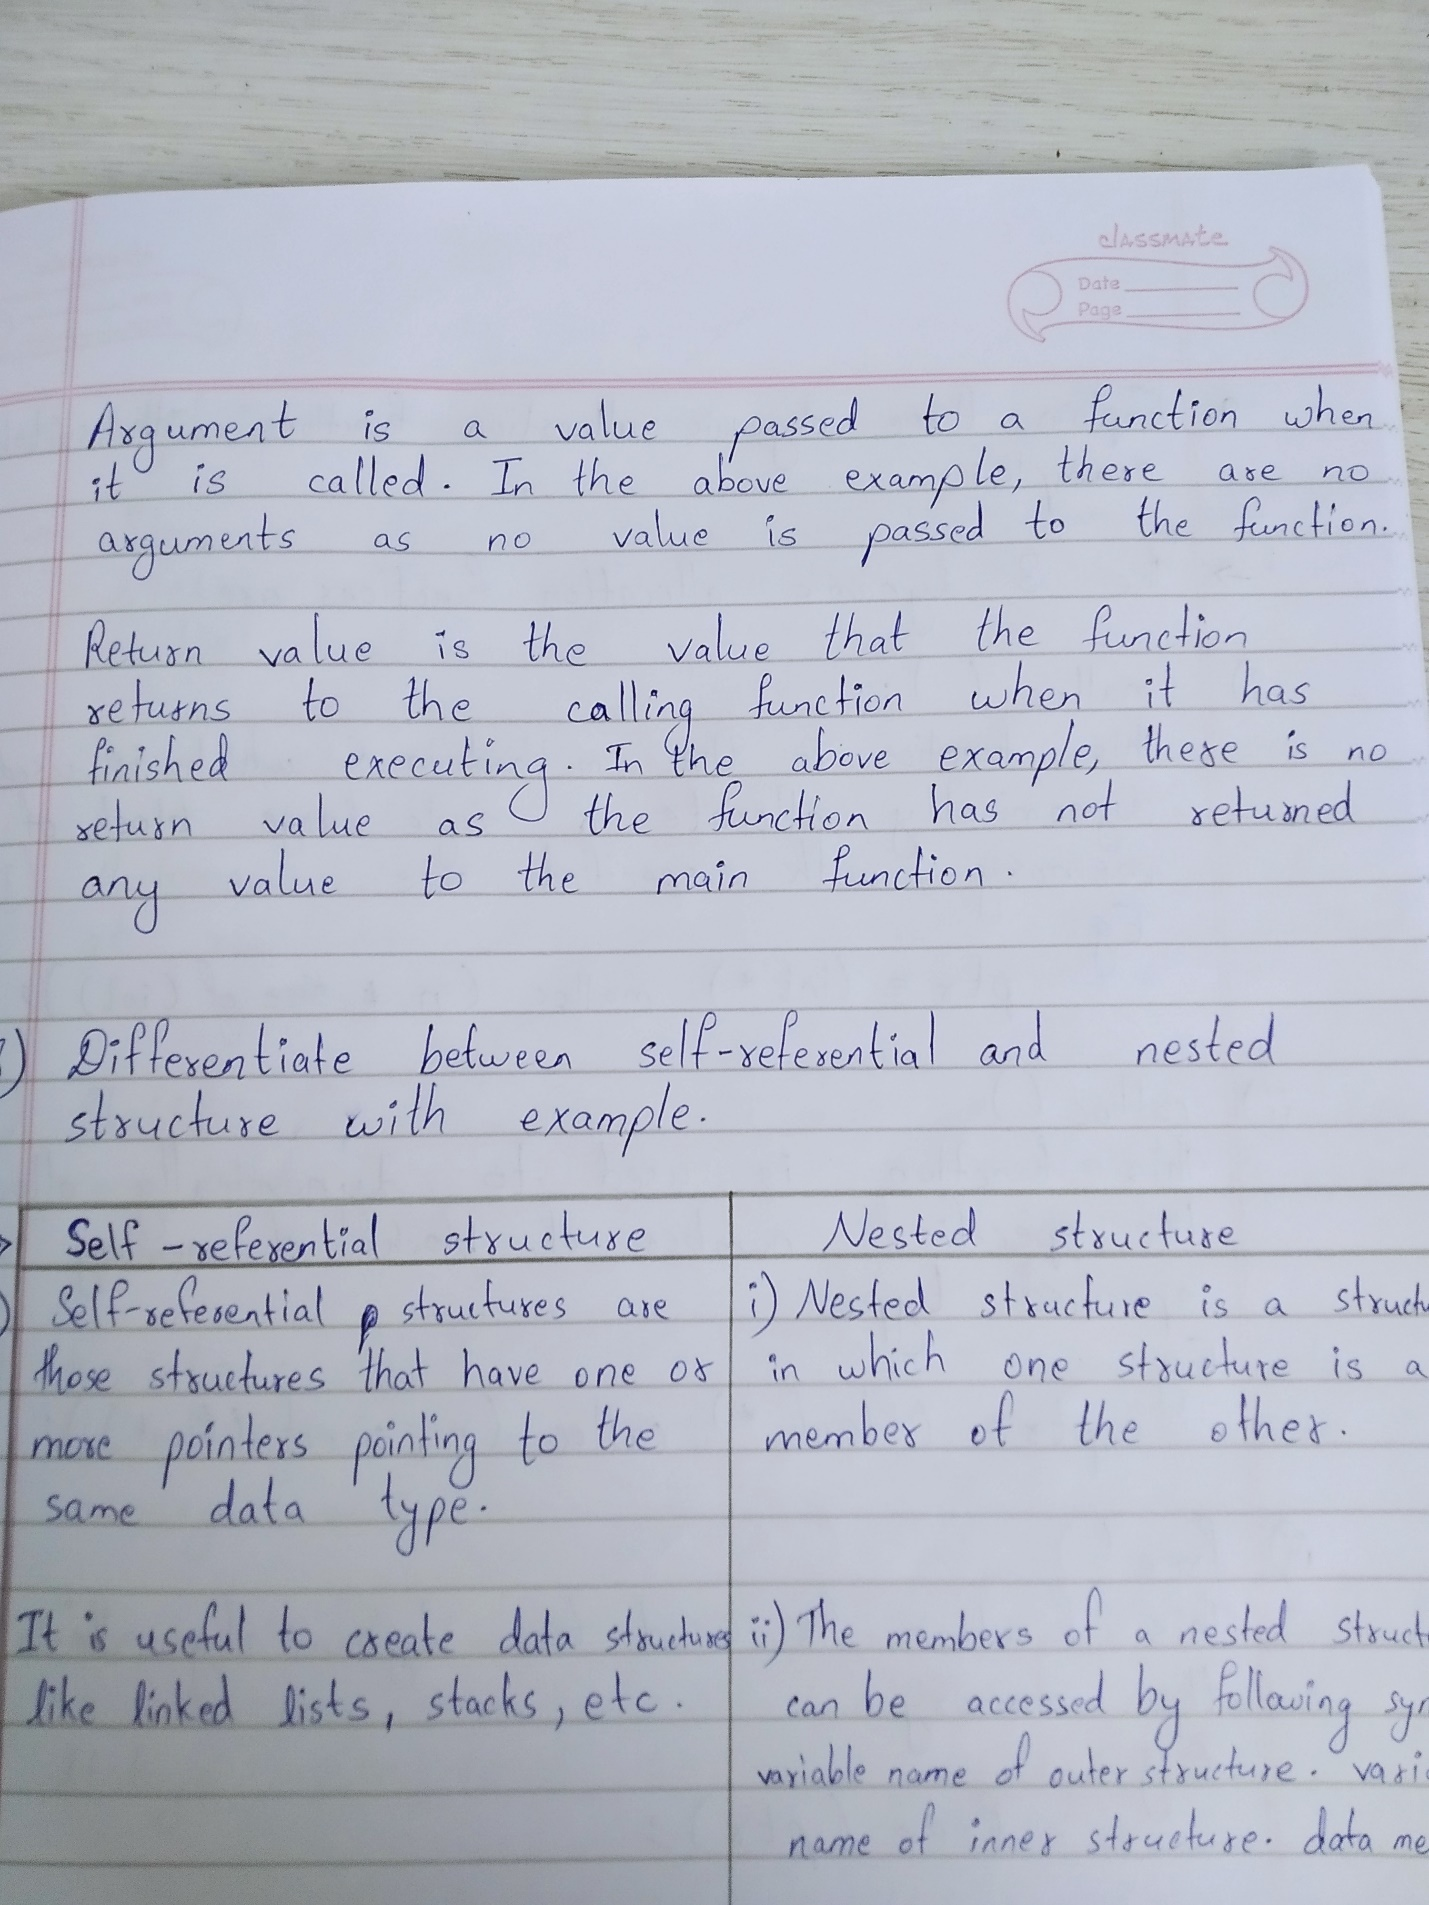 classmate
Date
Page
Argument is a value passed to a function when
it is called. In the above example, there are no
arguments as no value is passed to the function.
Return value is the value that the function
returns to the calling function when it has
finished executing. In the above example, there is no
return value as the function has not returned
any value to the main function.
) Differentiate between self-referential and nested
structure with example.
Self-referential structure
Self-referential structures are
those structures that have one or
more pointers pointing to the
same data type.
It is useful to create data structures
like linked lists, stacks, etc.
Nested structure
i) Nested structure is a
in which one structure is a
member of the other.
ii) The members of a nested
can be accessed by following
variable name of outer structure.
name of inner structure. data